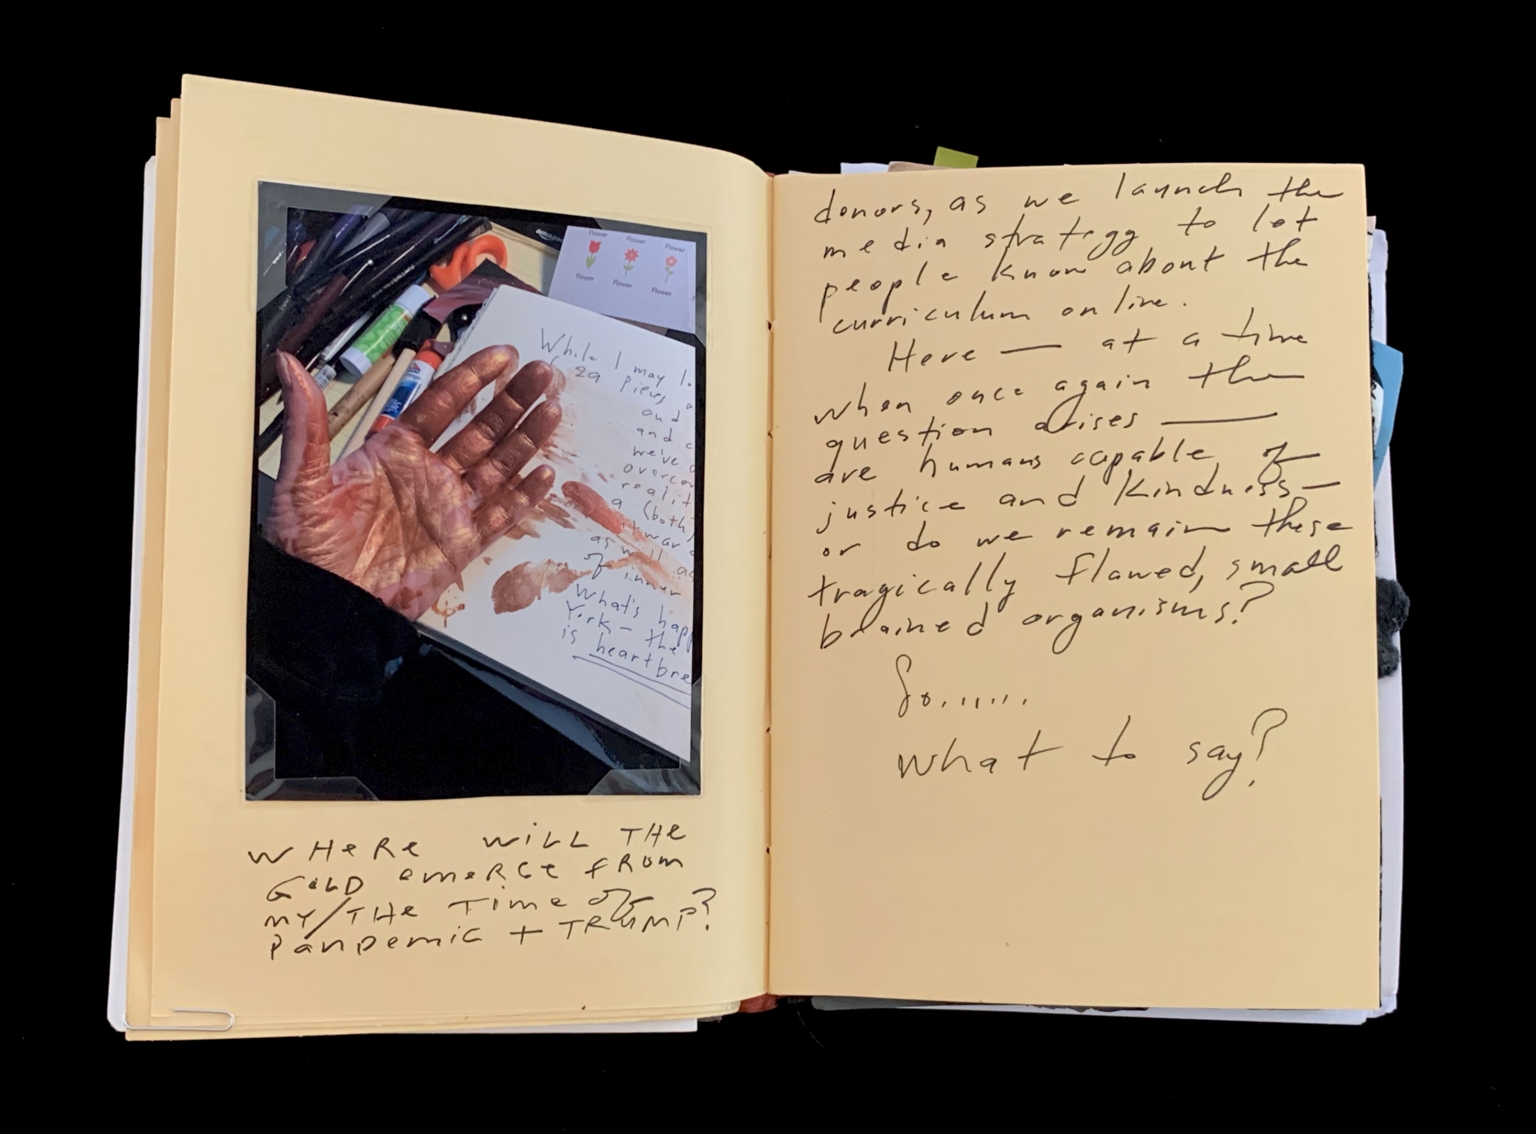 Flower Flower Flower
Flower Flower Flower
While I may lo
29 pieces a
and
and c
we've o
overcom
realit
a (both
outward
as well as
of inner
What's happ
York – the
is heartbre
WHERE WILL THE
GOLD emeRGE FROM
MY/THE TIME OF
PANDEMIC + TRUMP?
donors, as we launch the
media strategy to let
people know about the
curriculum online.
Here — at a time
when once again the
question arises —
are humans capable of
justice and kindness –
or do we remain these
tragically flawed, small
brained organisms?
So......
What to say?